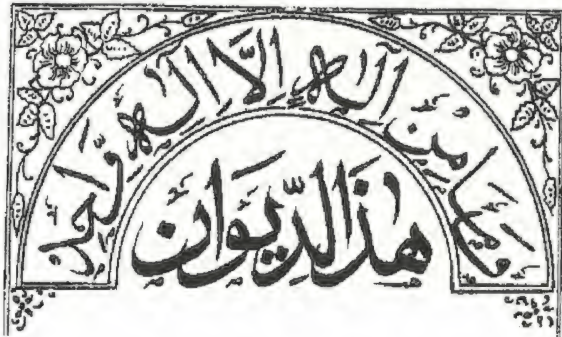 وَمَا مِنْ إِلٰهٍ إِلَّا إِلٰهٌ وَاحِدٌ
هٰذَا الدِّيوَان